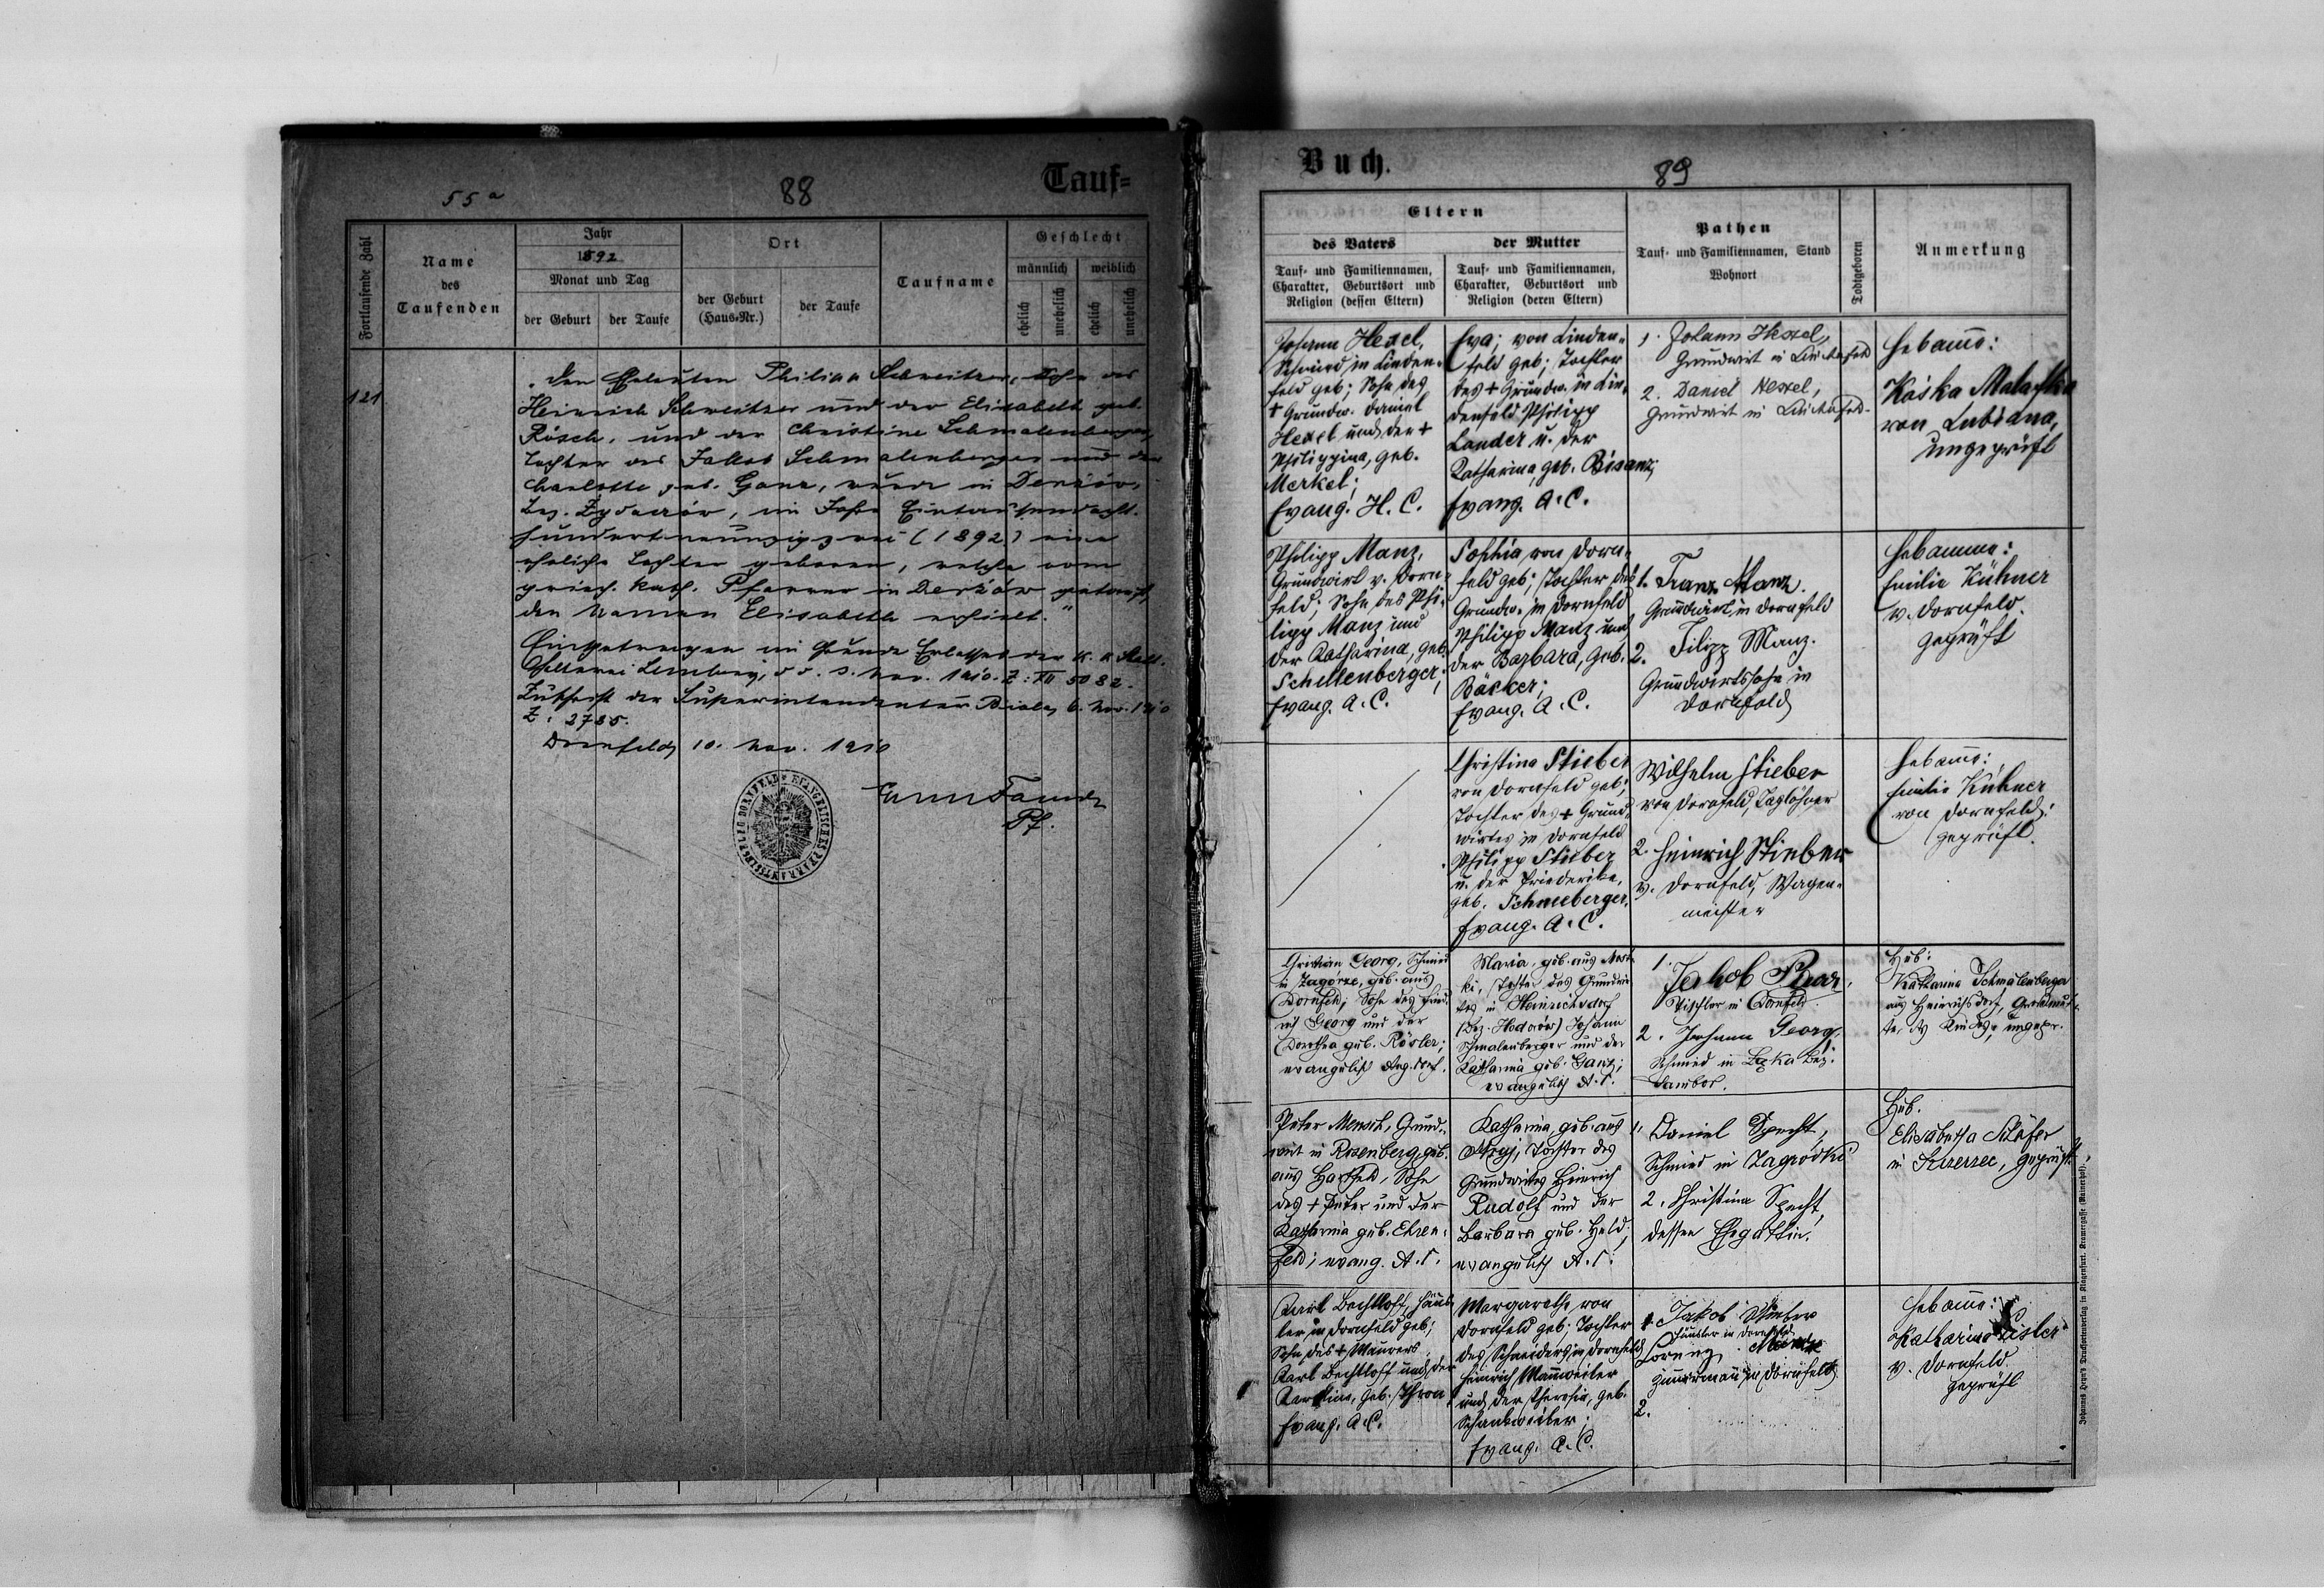 55a
88
Tauf=
Fortlaufende Zahl
Name
des
Taufenden
Jahr
1892
Monat und Tag
der Geburt
der Taufe
Ort
der Geburt
(Haus-Nr.)
der Taufe
Taufname
Geschlecht
männlich
weiblich
ehelich
unehelich
ehelich
unehelich
121
„Den Eheleuten Philipp Schweitzer, Sohn des
Heinrich Schweitzer und der Elisabeth geb.
Rösch, und der Christine Schmalenberger,
Tochter des Jakob Schmalenberger und der
Charlotte geb. Ganz, wurde in Derżów,
Bez. Żydaczów, im Jahre Eintausendacht-
hundertneunzigzwei (1892) eine
eheliche Tochter geboren, welche vom
griech. kath. Pfarrer in Derżów getauft,
den Namen Elisabeth erhielt."
Eingetragen im Grunde Erlasses der k. k. Statt-
halterei Lemberg, dd. Nov. 1910. Z: XII 5082.
Zuschrift der Superintendentur Biala, 6. Nov. 1910
Z: 2785.
Dornfeld, 10. Nov. 1910
Pf.
EVANGELISCHES PFARRAMTSSIEGEL DORNFELD
Buch.
89
Eltern
des Vaters
der Mutter
Tauf- und Familiennamen,
Charakter, Geburtsort und
Religion (dessen Eltern)
Tauf- und Familiennamen,
Charakter, Geburtsort und
Religion (deren Eltern)
Pathen
Tauf- und Familiennamen, Stand
Wohnort
Todtgeboren
Anmerkung
Johann Hexel,
Schmied, in Linden-
feld geb; Sohn des
+ Grundw. Daniel
Hexel und der +
Philippina, geb.
Merkel;
Evang. H. C.
Eva; von Linden-
feld geb; Tochter
des + Grundw. in Lin-
denfeld Philipp
Lander u. der
Katharina, geb. Bisanz;
Evang. A. C.
1. Johann Hexel,
Grundwirt in Lindenfeld
2. Daniel Hexel,
Grundwirt in Lindenfeld.
Hebame:
Káska
von Lubiana,
ungeprüft
Philipp Manz,
Grundwirt v. Dorn-
feld; Sohn des Phi-
lipp Manz und
der Katharina, geb.
Schellenberger;
Evang. A. C.
Sophia von Dorn-
feld geb; Tochter des
Grundw. in Dornfeld
Philipp Manz und
der Barbara, geb.
Bäcker;
Evang. A. C.
1. Franz Manz.
Grundwirt in Dornfeld
2. Filipp Manz.
Grundwirtssohn in
Dornfeld
Hebamme:
Emilie Kühner
v. Dornfeld.
geprüft
Christina Stieber
von Dornfeld geb;
Tochter des + Grund-
wirtes in Dornfeld
Philipp Stieber
u. der Friederike,
geb. Schneeberger.
Evang. A. C.
Wilhelm Stieber
von Dornfeld, Taglöhner
2. Heinrich Stieber
v. Dornfeld, Wagen-
meister
Hebame:
Emilie Kühner
von Dornfeld;
geprüft.
Christian Georg, Schmied
in Zagórze, geb. aus
Dornfeld; Sohn des Fried-
rich Georg und der
Dorothea geb. Rösler;
evangelisch Aug. Conf.
Maria, geb. aus
ki, Tochter des Grundwir-
tes in Heinrichsdorf
(Bez. Hodorów) Johann
Schmalenberger und der
Katharina geb. Ganz;
evangelisch A. C.
1.
Jakob
Tischler in Dornfeld.
2. Johann Georg,
Schmied in Łąka Bez.
Sambor.
Heb:
Katharina Schmalenberger
aus Heinrichsdorf, Großmut-
ter des Kindes, ungepr.
Peter Mensch, Grund-
wirt in Rosenberg, geb.
aus Hartfeld, Sohn
des + Peter und der
Katharina geb. Ehren-
feld; evang. A. C.
Katharina, geb. aus
Stryj, Tochter des
Grundwirtes Heinrich
Rudolf und der
Barbara geb. Held;
evangelisch A. C.
1. Daniel Specht,
Schmied in Zagrodki
2. Christina Specht,
dessen Ehegattin.
Heb.
Elisabetha Schäfer
in Szczerzec, geprüft.
Karl Bechtloff, Häus-
ler in Dornfeld geb;
Sohn des + Maurers
Karl Bechtloff und der
Karoline, geb. Thron
Evang. A. C.
Margarethe von
Dornfeld geb; Tochter
des Schneiders in Dornfeld
Heinrich Mannweiler
und der Theresia, geb.
Schankweiler;
Evang. A. C.
1. Jakob
Häusler in Dornfeld
Lorenz
Zimmermann in Dornfeld
2.
Hebame:
Katharina Lister
v. Dornfeld.
geprüft
Johannes Heyn's Drucksortenverlag in Klagenfurt, Kramergasse (Rainerhof).